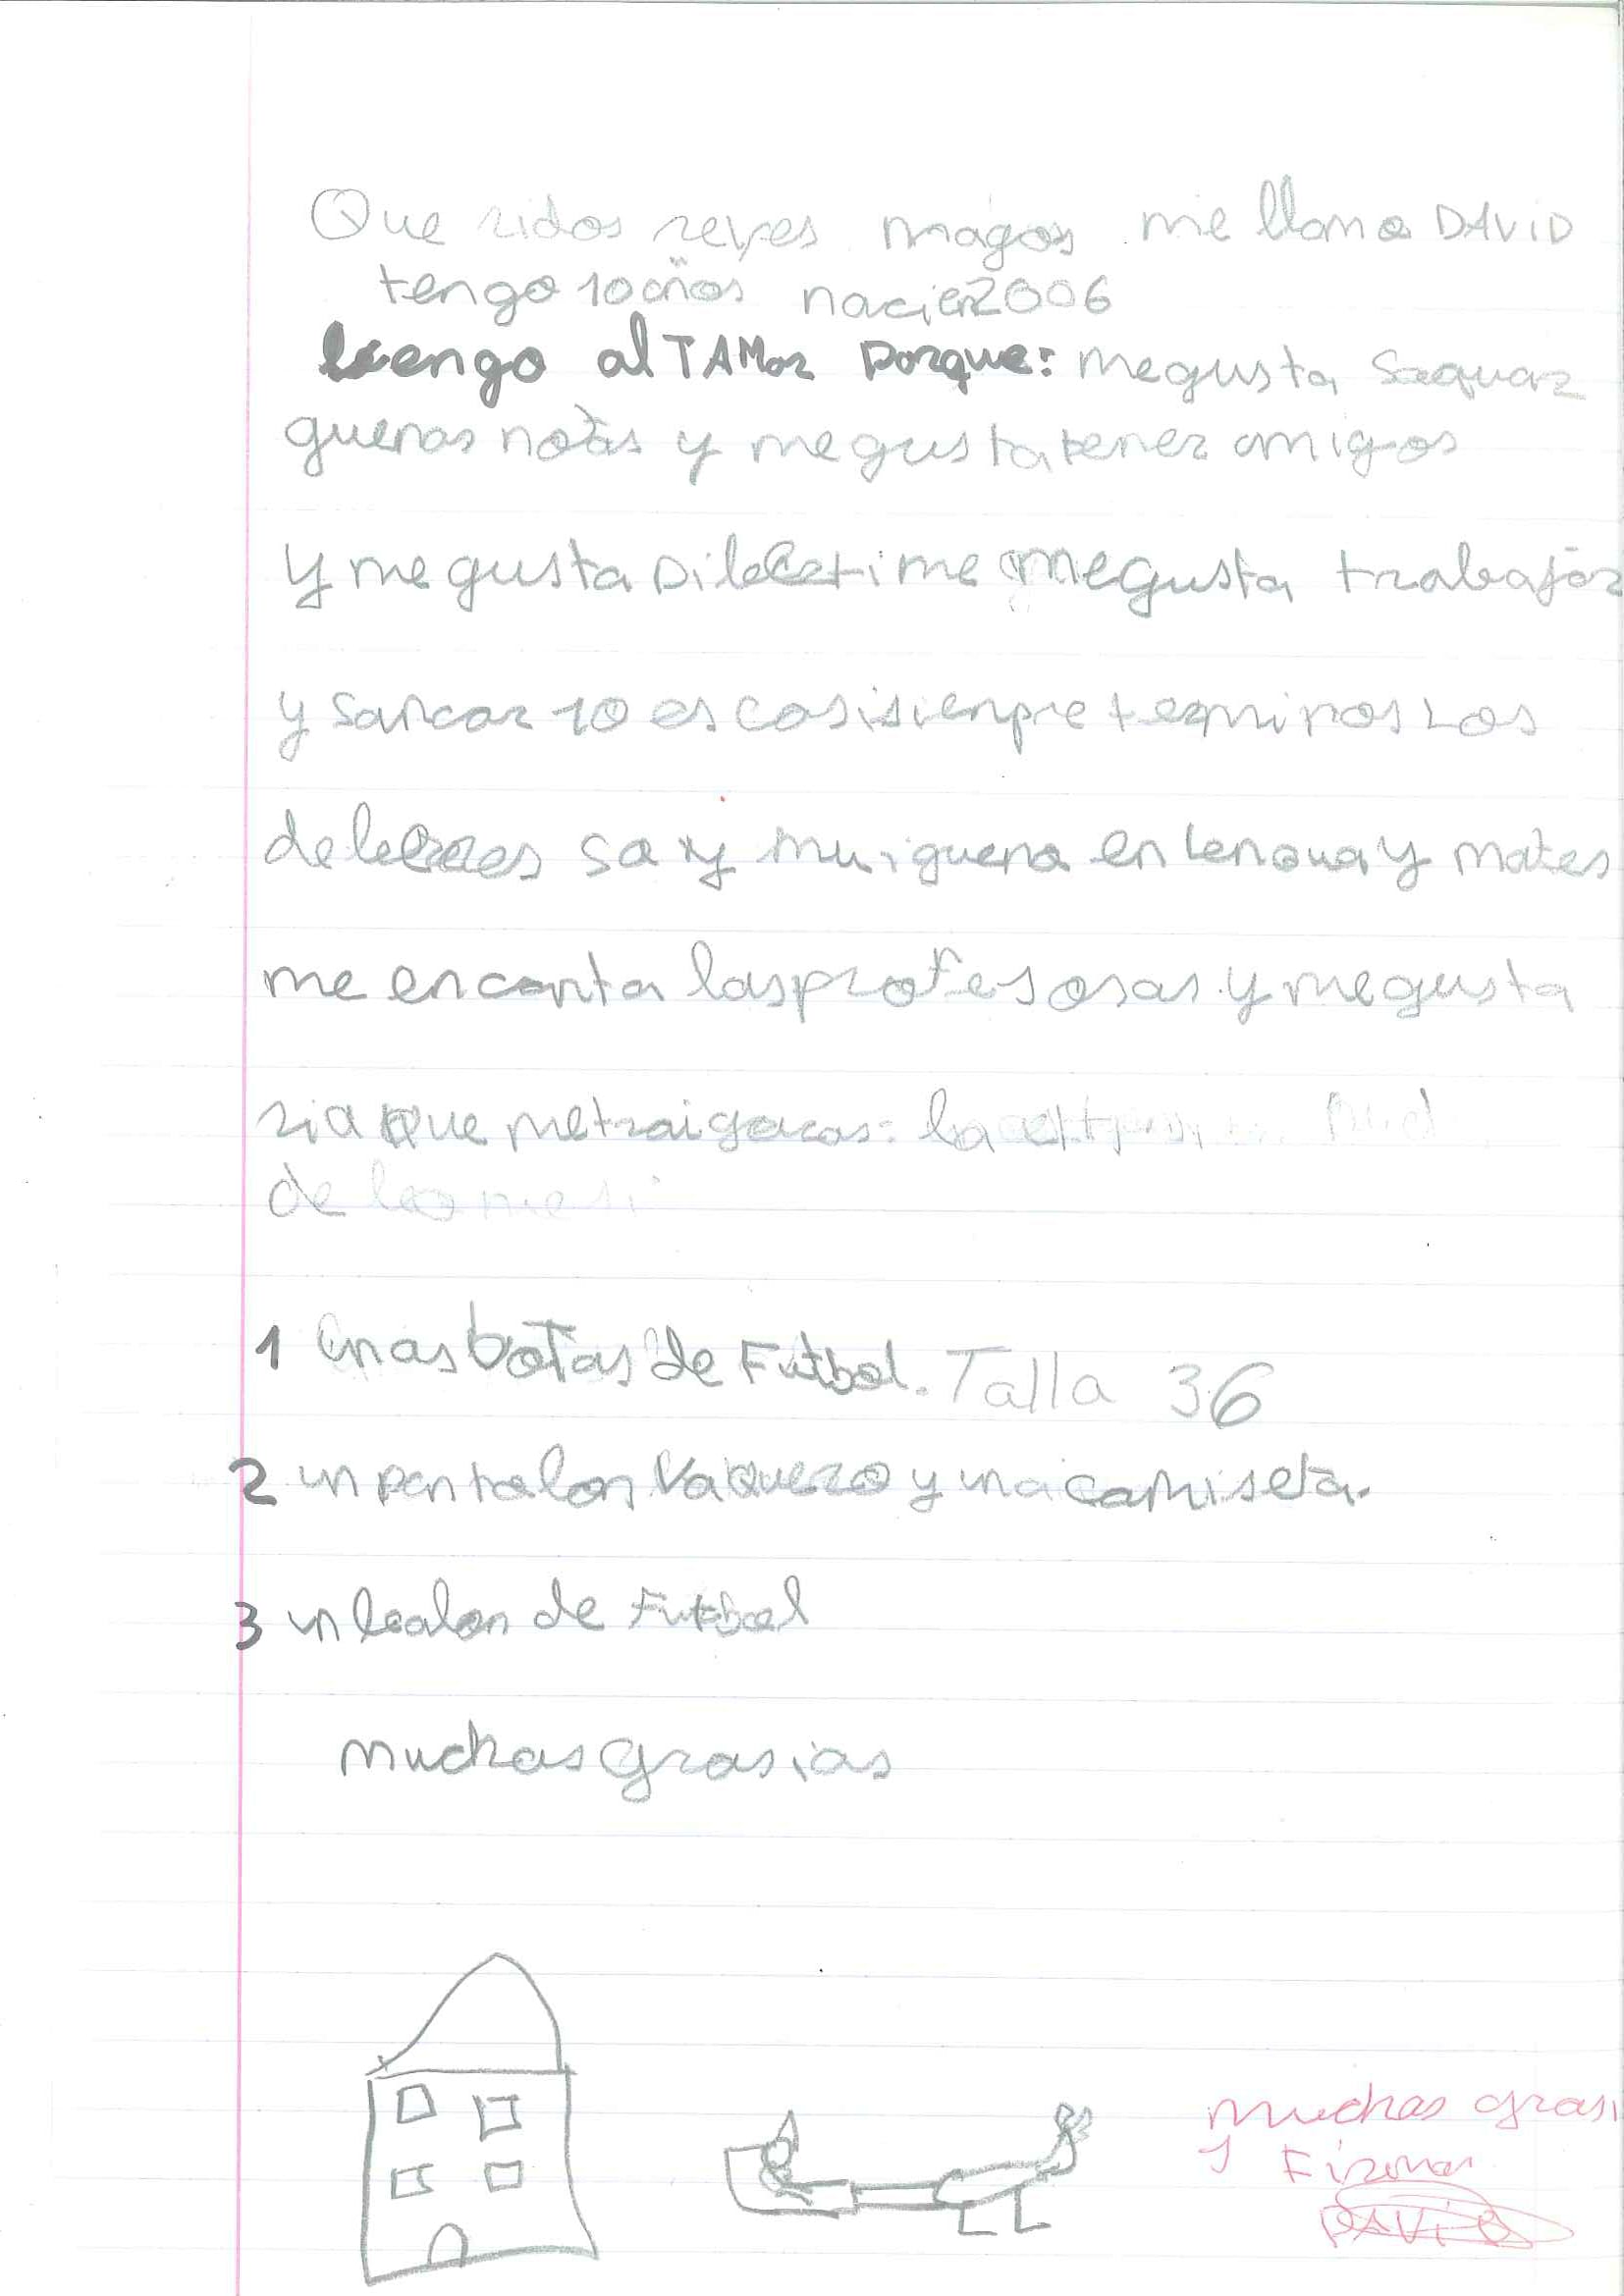 Que ridos reyes magos me llamo DAViD
tengo 10 años nacien2006
bengo al TAMar porque: megusta saquar
guenas notas y me gusta tener amigos
y me gusta Dibertirme megusta trabajar
y sancar 10 es casi sienpre termino los
deberes soy mui gueno en lengua y mates
me encanta las profesosas y megusta
ria que metraigaras: la
de leo mesi
1 unas botas de Futbol. Talla 36
2 un pantalon Vaquero y una camiseta.
3 un balon de Futbol
muchas grasias
muchas grasi
y Firma
DAViD